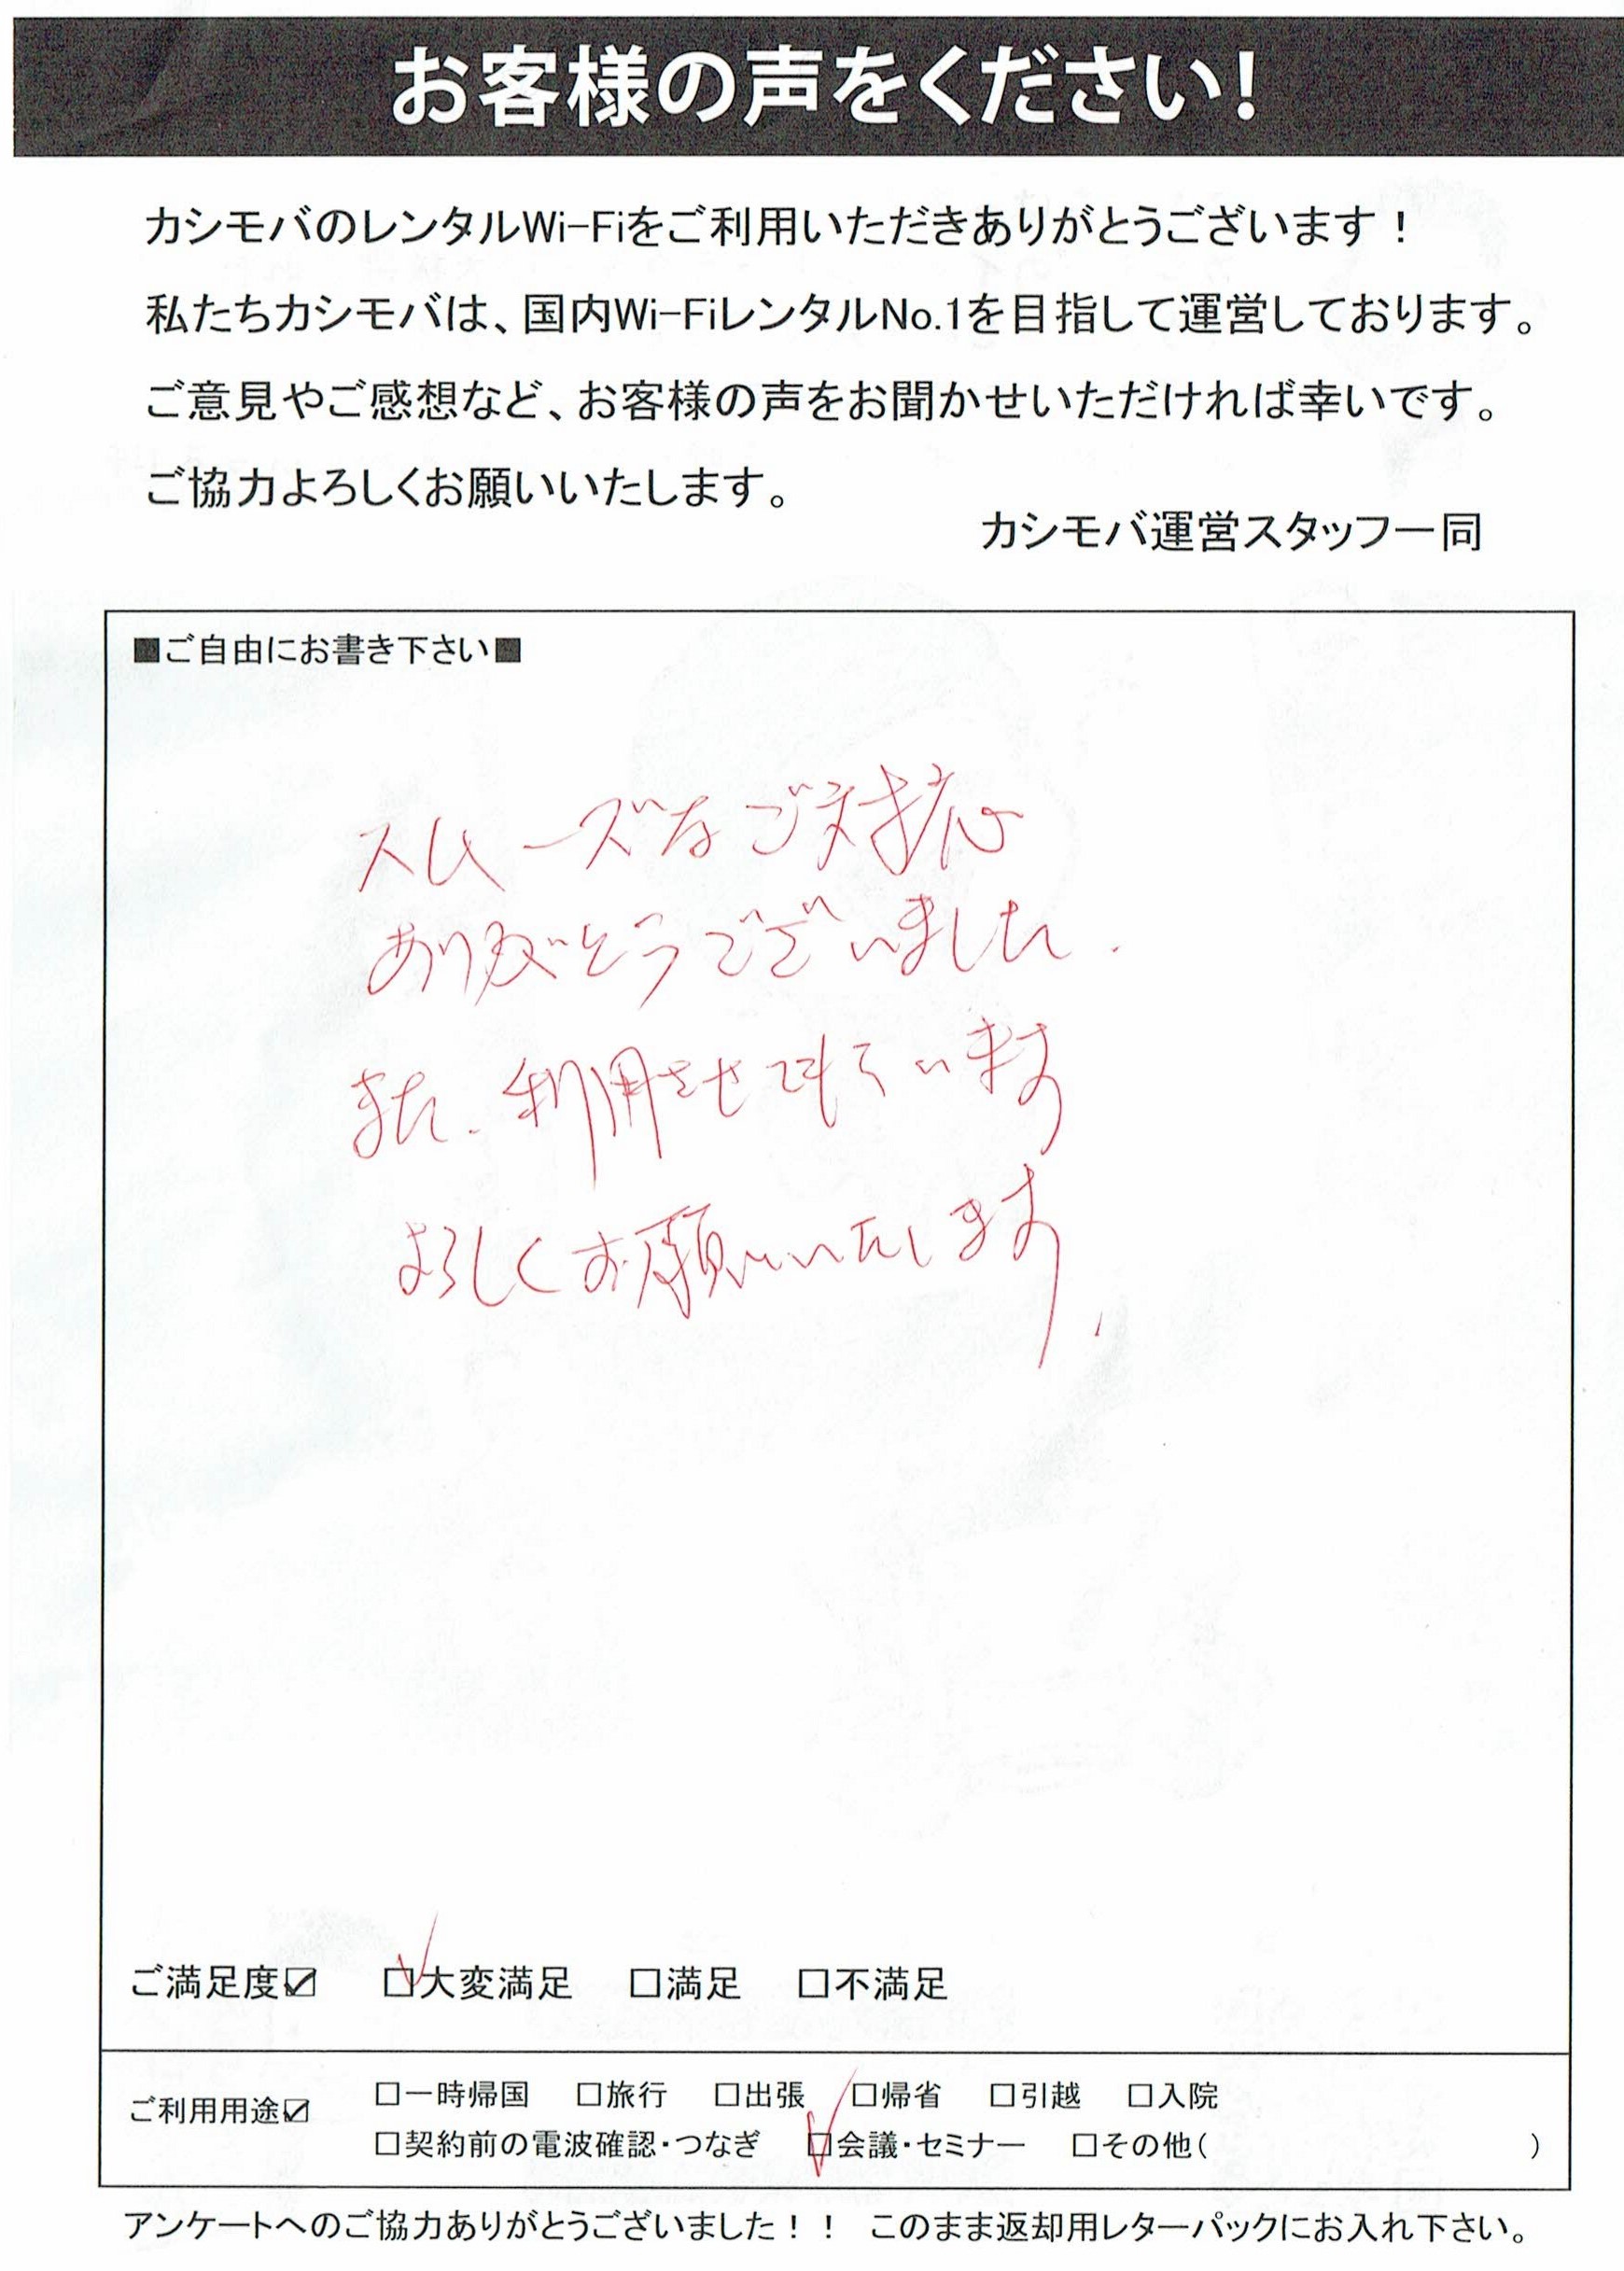 お客様の声をください!
カシモバのレンタルWi-Fiをご利用いただきありがとうございます！
私たちカシモバは、国内Wi-FiレンタルNo.1を目指して運営しております。
ご意見やご感想など、お客様の声をお聞かせいただければ幸いです。
ご協力よろしくお願いいたします。
カシモバ運営スタッフ一同
■ご自由にお書き下さい■
スムーズなご対応
ありがとうございました.
また、利用させて
います
よろしくお願いいたします.
ご満足度☑ □大変満足 □満足 □不満足
ご利用用途☑ □一時帰国 □旅行 □出張 □帰省 □引越 □入院
□契約前の電波確認・つなぎ □会議・セミナー □その他( )
アンケートへのご協力ありがとうございました！！ このまま返却用レターパックにお入れ下さい。